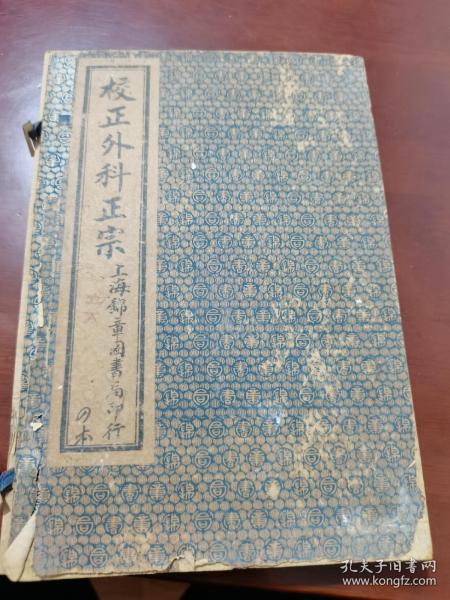 校正外科正宗
上海錦章圖書局印行
の本
孔夫子旧书网
www.kongfz.com